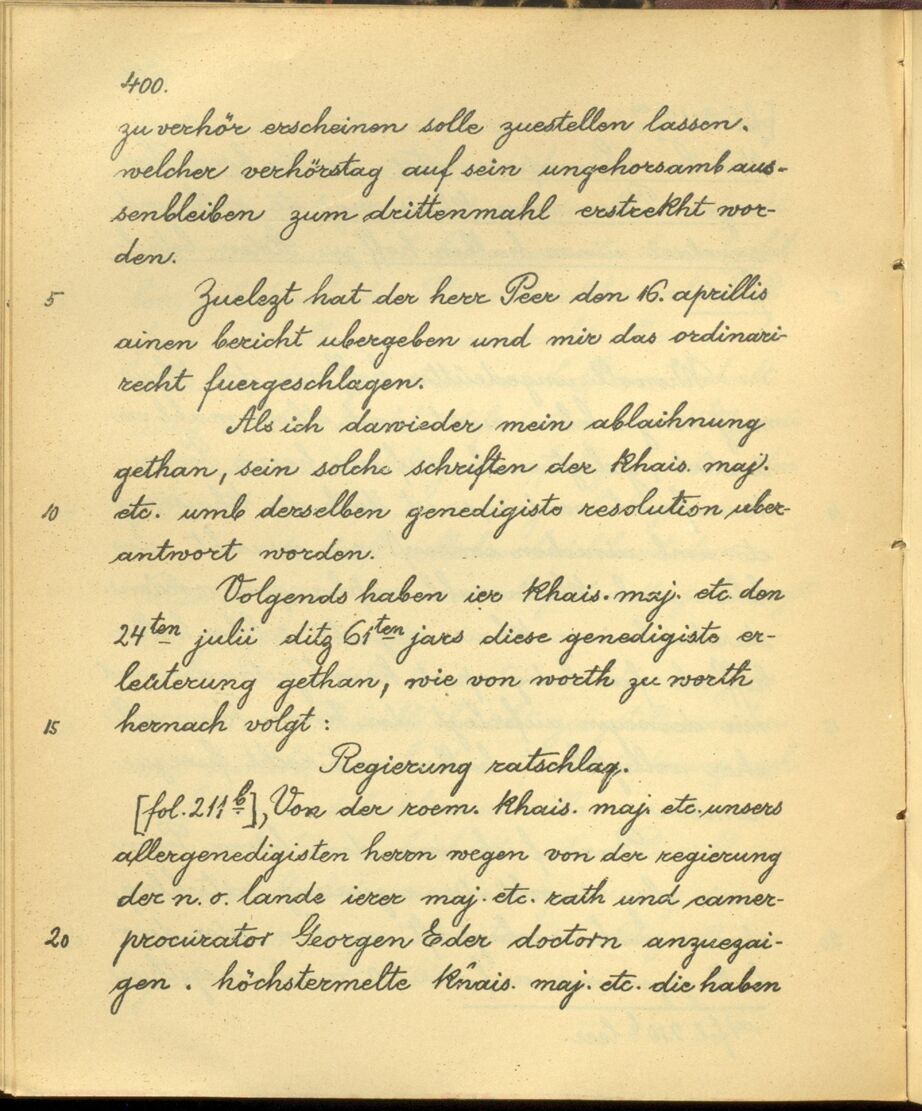 400.
zu verhör erscheinen solle zuestellen lassen.
welcher verhörstag auf sein ungehorsamb aus-
senbleiben zum drittenmahl erstrekht wor-
den.
5 Zuelezt hat der herr Peer den 16. aprillis
ainen bericht ubergeben und mir das ordinari-
recht fuergeschlagen.
Als ich dawieder mein ablaihnung
gethan, sein solche schriften der khais. maj.
10 etc. umb derselben genedigiste resolution uber-
antwort worden.
Volgends haben ier khais. maj. etc. den
24ten julii ditz 61ten jars diese genedigiste er-
leüterung gethan, wie von worth zu worth
15 hernach volgt:
Regierung ratschlag.
[fol. 211b], Von der roem. khais. maj. etc. unsers
allergenedigisten herrn wegen von der regierung
der n. o. lande ierer maj. etc. rath und camer-
20 procurator Georgen Eder doctorn anzuezai-
gen. höchstermelte khais. maj. etc. die haben